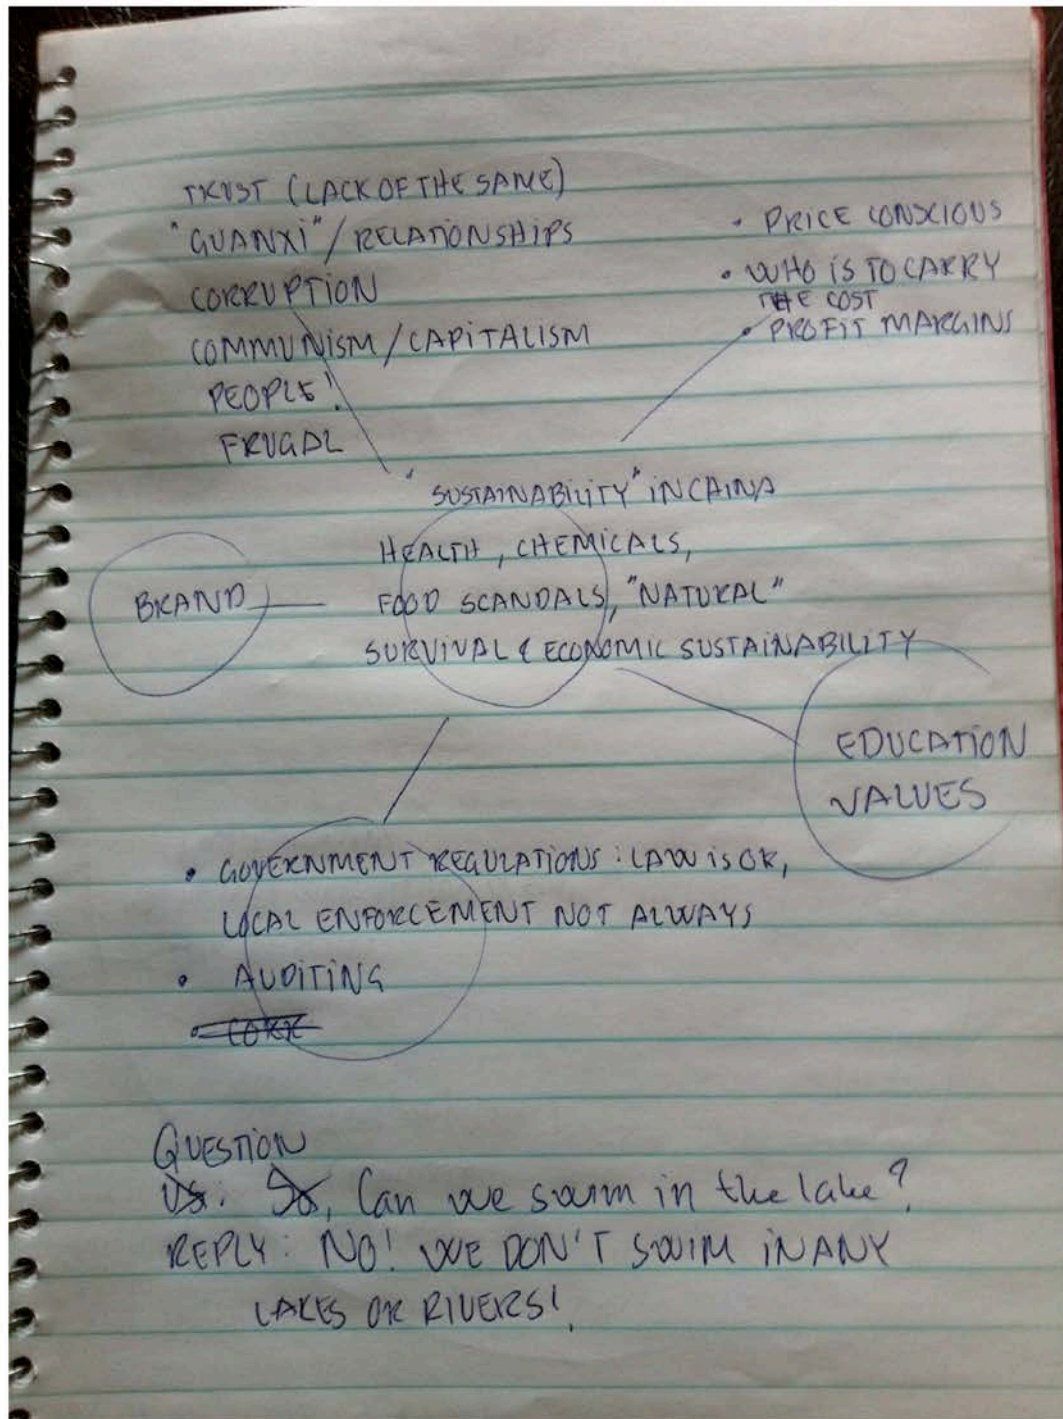 TRUST (LACK OF THE SAME)
"GUANXI" / RELATIONSHIPS
CORRUPTION
COMMUNISM / CAPITALISM
PEOPLE!
FRUGAL
• PRICE CONSCIOUS
• WHO IS TO CARRY
THE COST
• PROFIT MARGINS
"SUSTAINABILITY" IN CHINA
HEALTH, CHEMICALS,
FOOD SCANDALS, "NATURAL"
SURVIVAL & ECONOMIC SUSTAINABILITY
BRAND
EDUCATION
VALUES
• GOVERNMENT REGULATIONS: LAW IS OK,
LOCAL ENFORCEMENT NOT ALWAYS
• AUDITING
• CORR
QUESTION
US: So, Can we swim in the lake?
REPLY: NO! WE DON'T SWIM IN ANY
LAKES OR RIVERS!